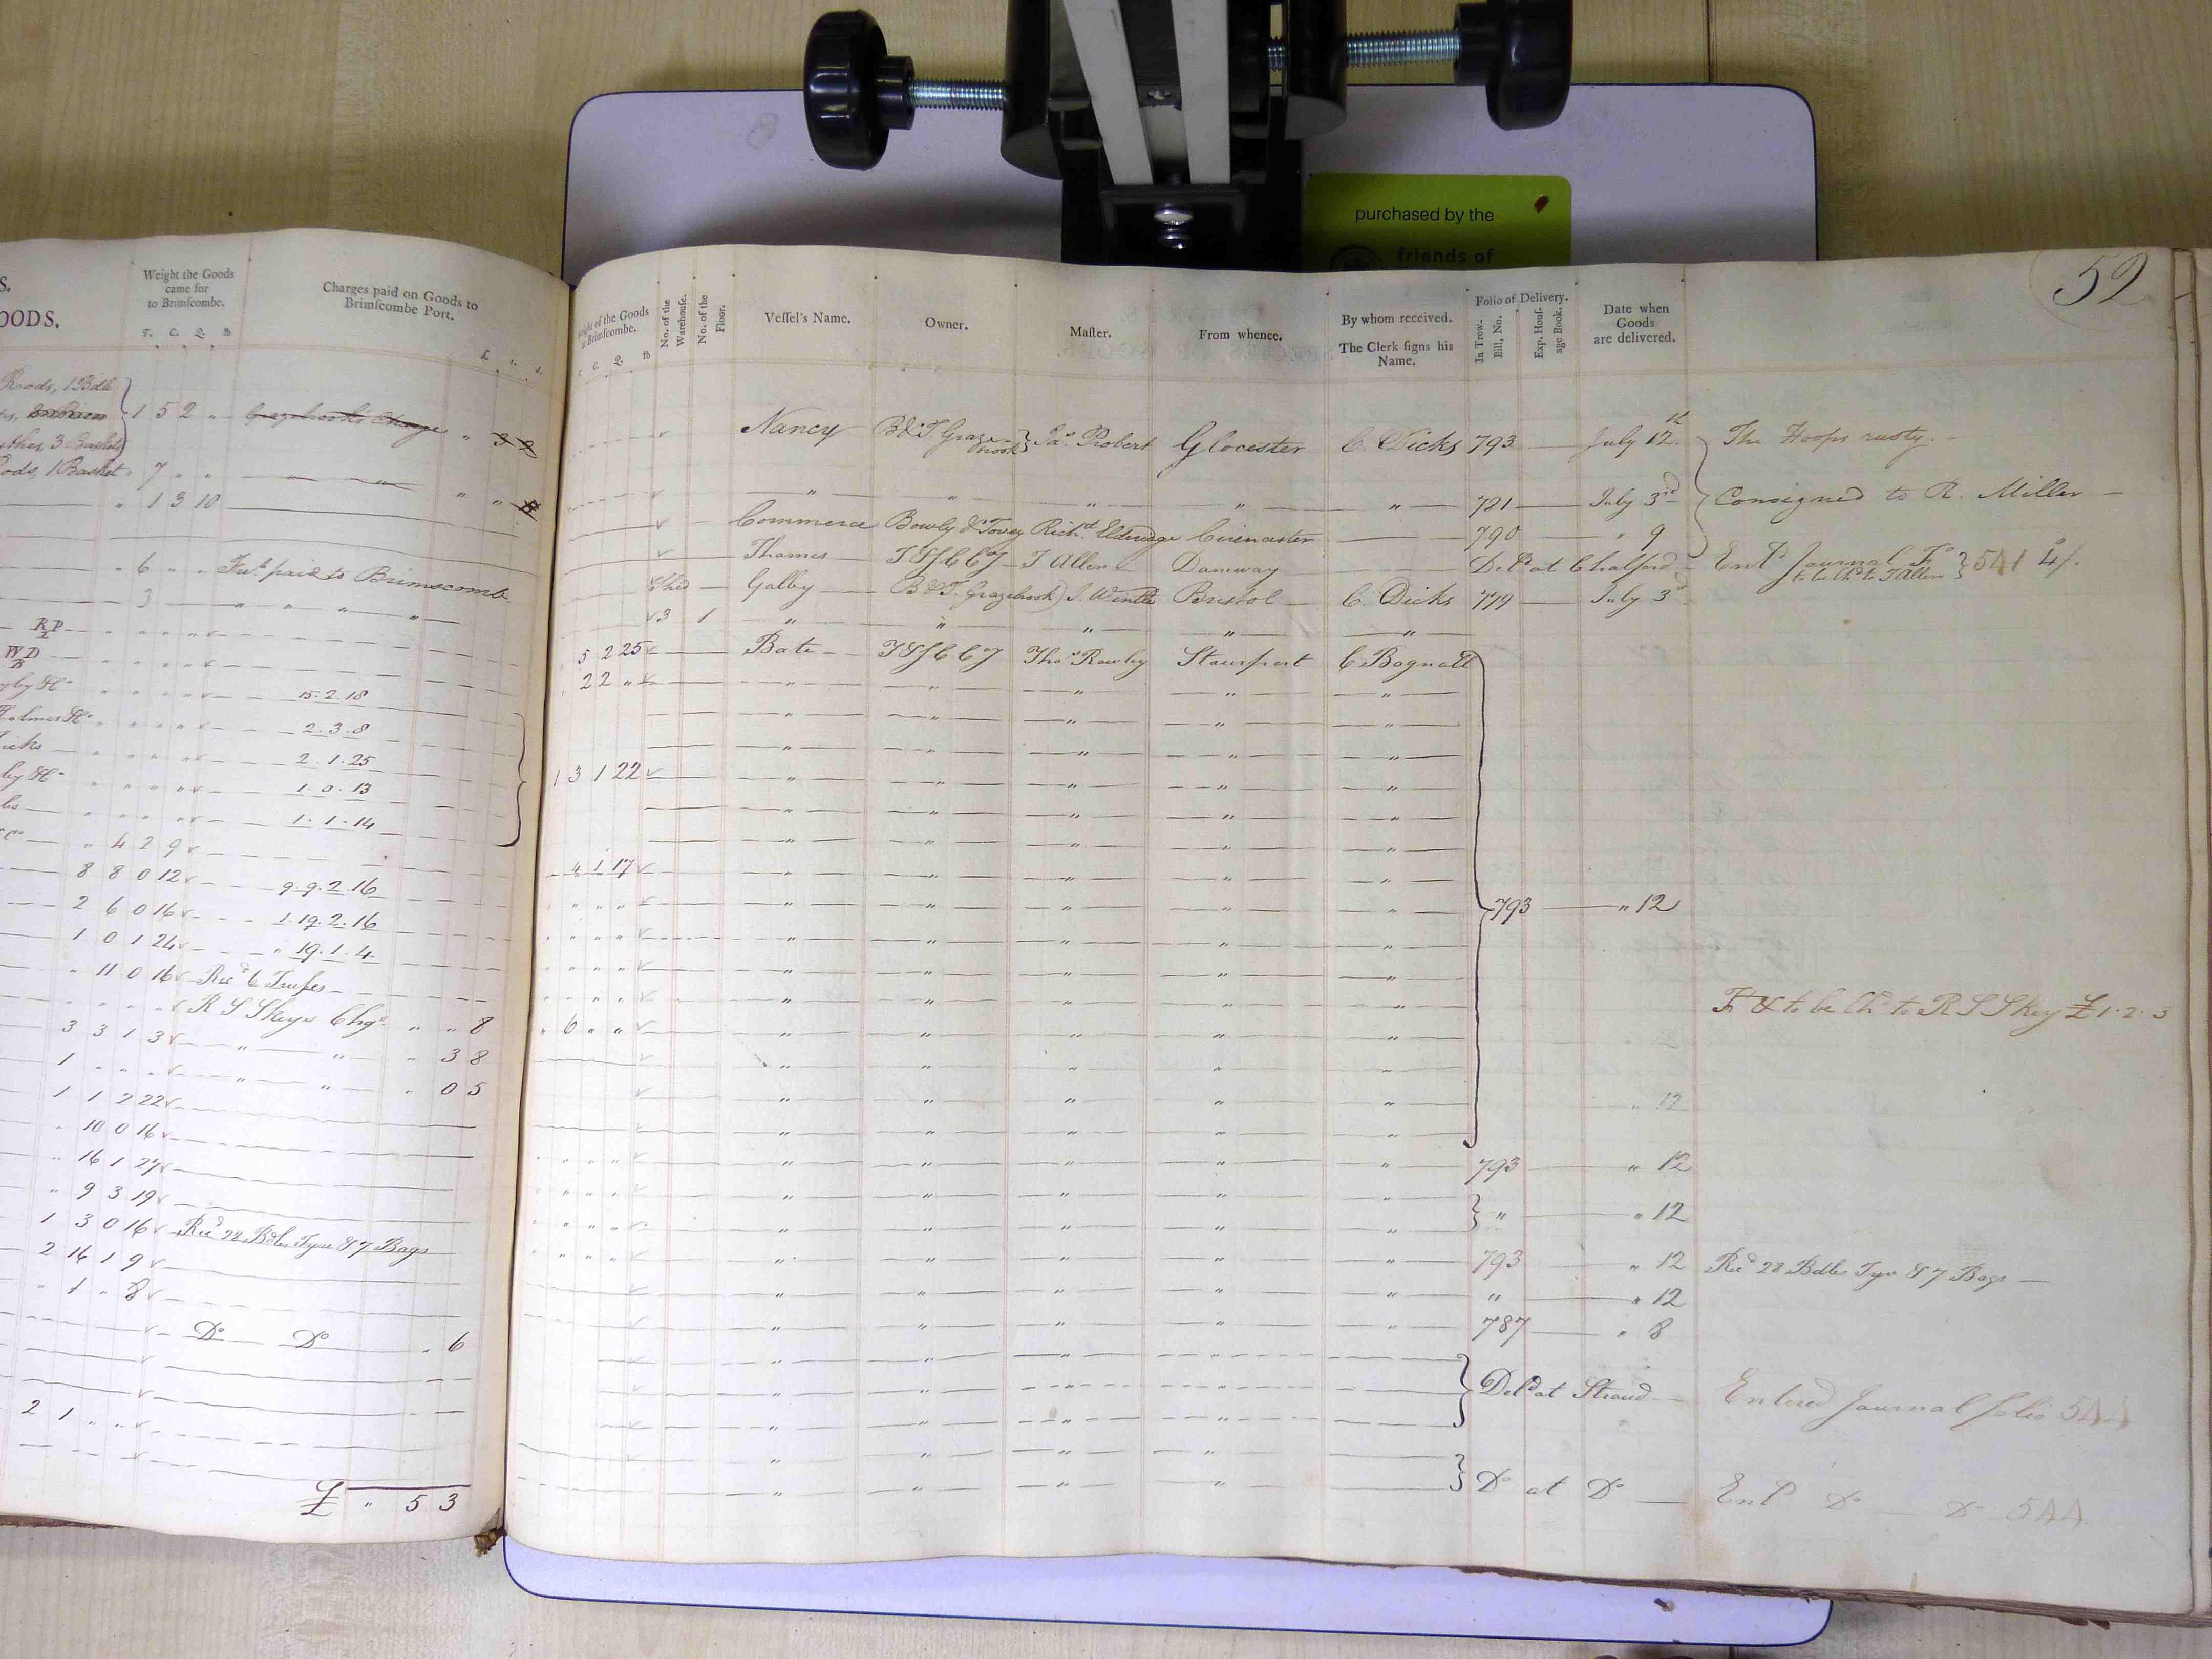 purchased by the
friends of
52
S.
OODS.
Weight the Goods
came for
to Brimſcombe.
T. C. Q. lb
Charges paid on Goods to
Brimſcombe Port.
£. s. d.
Rods, 1 Bdle
1 5 2 " Grazebrook's Charge " 3 2
3 Baskets
ods, 1 Basket 7 " "
" 1 3 10
" 6 " " Frt. paid to Brimscomb
3 " " " "
RP
WD
15.2.18
Holmes &c 2.3.8
2.1.25
1.0.13
1.1.14
" 4 2 9
8 8 0 12 9.9.2.16
2 6 0 16 1.19.2.16
1 0 1 24 " 19.1.4
" 11 0 16 Recd 6 Trusses
R S Skeys Chgs " " 8
3 3 1 3 " " " 3 8
1 " " " " " " 0 5
1 1 2 22
" 10 0 16
" 16 1 27
" 9 3 19
1 3 0 16 Recd 28 Bdles Tyre & 7 Bags
2 16 1 9
" 1 " 8
Do Do " 6
2 1 " "
£ " 5 3
ight of the Goods
Brimſcombe.
C. Q. lb
No. of the
Warehouse.
No. of the
Floor.
Veſſel's Name.
Owner.
Maſter.
From whence.
By whom received.
The Clerk ſigns his
Name.
Folio of Delivery.
In Trow.
Bill, No.
Exp. Houſ-
age Book.
Date when
Goods
are delivered.
Nancy B & T. Graze-brook Jas. Probert Glocester C. Dicks 793 July 12th The Hoops rusty.
" " " " " 781 July 3rd Consigned to R. Miller
Commerce Bowly & Tovey Richd. Elderidge Cirencester 790 " 9
Thames T & S C C Y J Allen Damway Deld at Chalford Entd Journal Fo 541 4/.
to be Chd to J Allen
Shed Galby B & T. Grazebrook J. Wintle Bristol C. Dicks 779 July 3d
3 1 " " " " "
5 2 25 Bate T & S C C Y Thos Rowley Stourport C Bagnall
22 " " " " " "
1 3 1 22 " " " " "
4 1 17 " " " " "
793 " 12
Ft & to be Chd to R S Skey £1.2.3
" 6 " " " " " " "
" 12
793 " 12
" " 12
793 " 12 Recd 28 Bdles Tyre & 7 Bags
" " 12
787 " 8
Deld at Stroud Entered Journal folio 544
Do at Do Entd Do Do 544